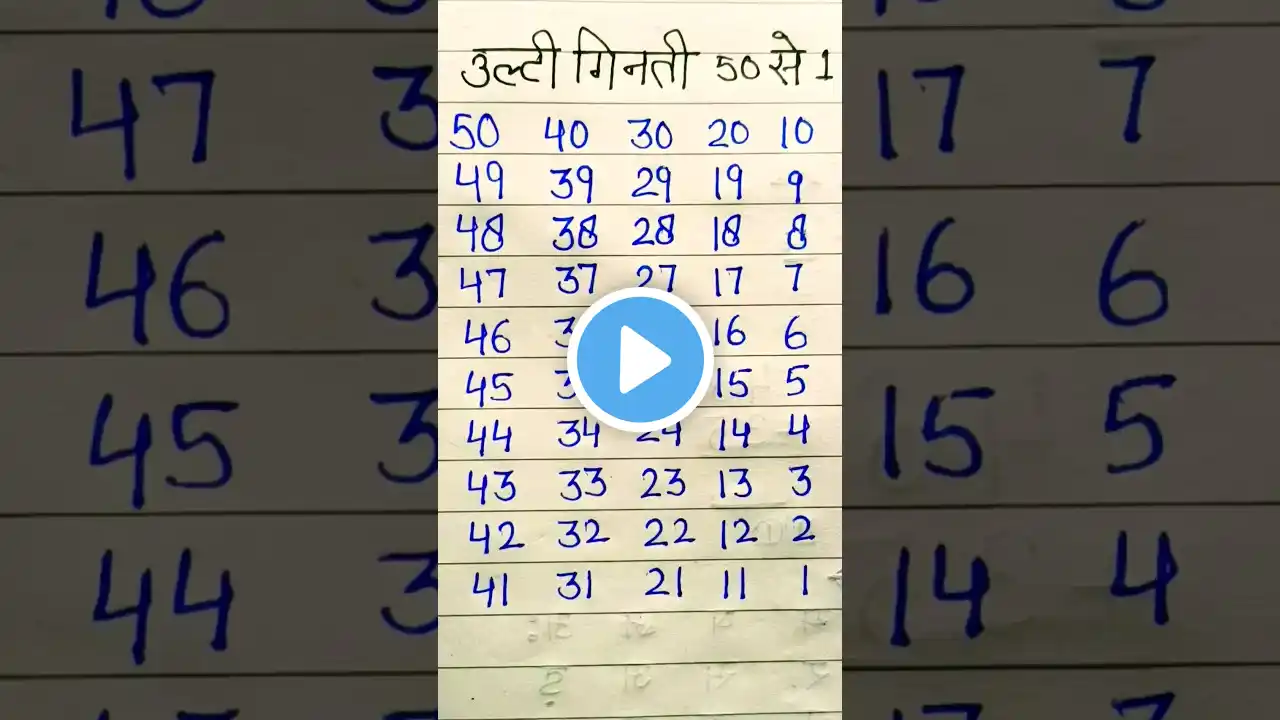 उल्टी गिनती 50 से 1
50 40 30 20 10
49 39 29 19 9
48 38 28 18 8
47 37 27 17 7
46 16 6
45 15 5
44 34 24 14 4
43 33 23 13 3
42 32 22 12 2
41 31 21 11 1